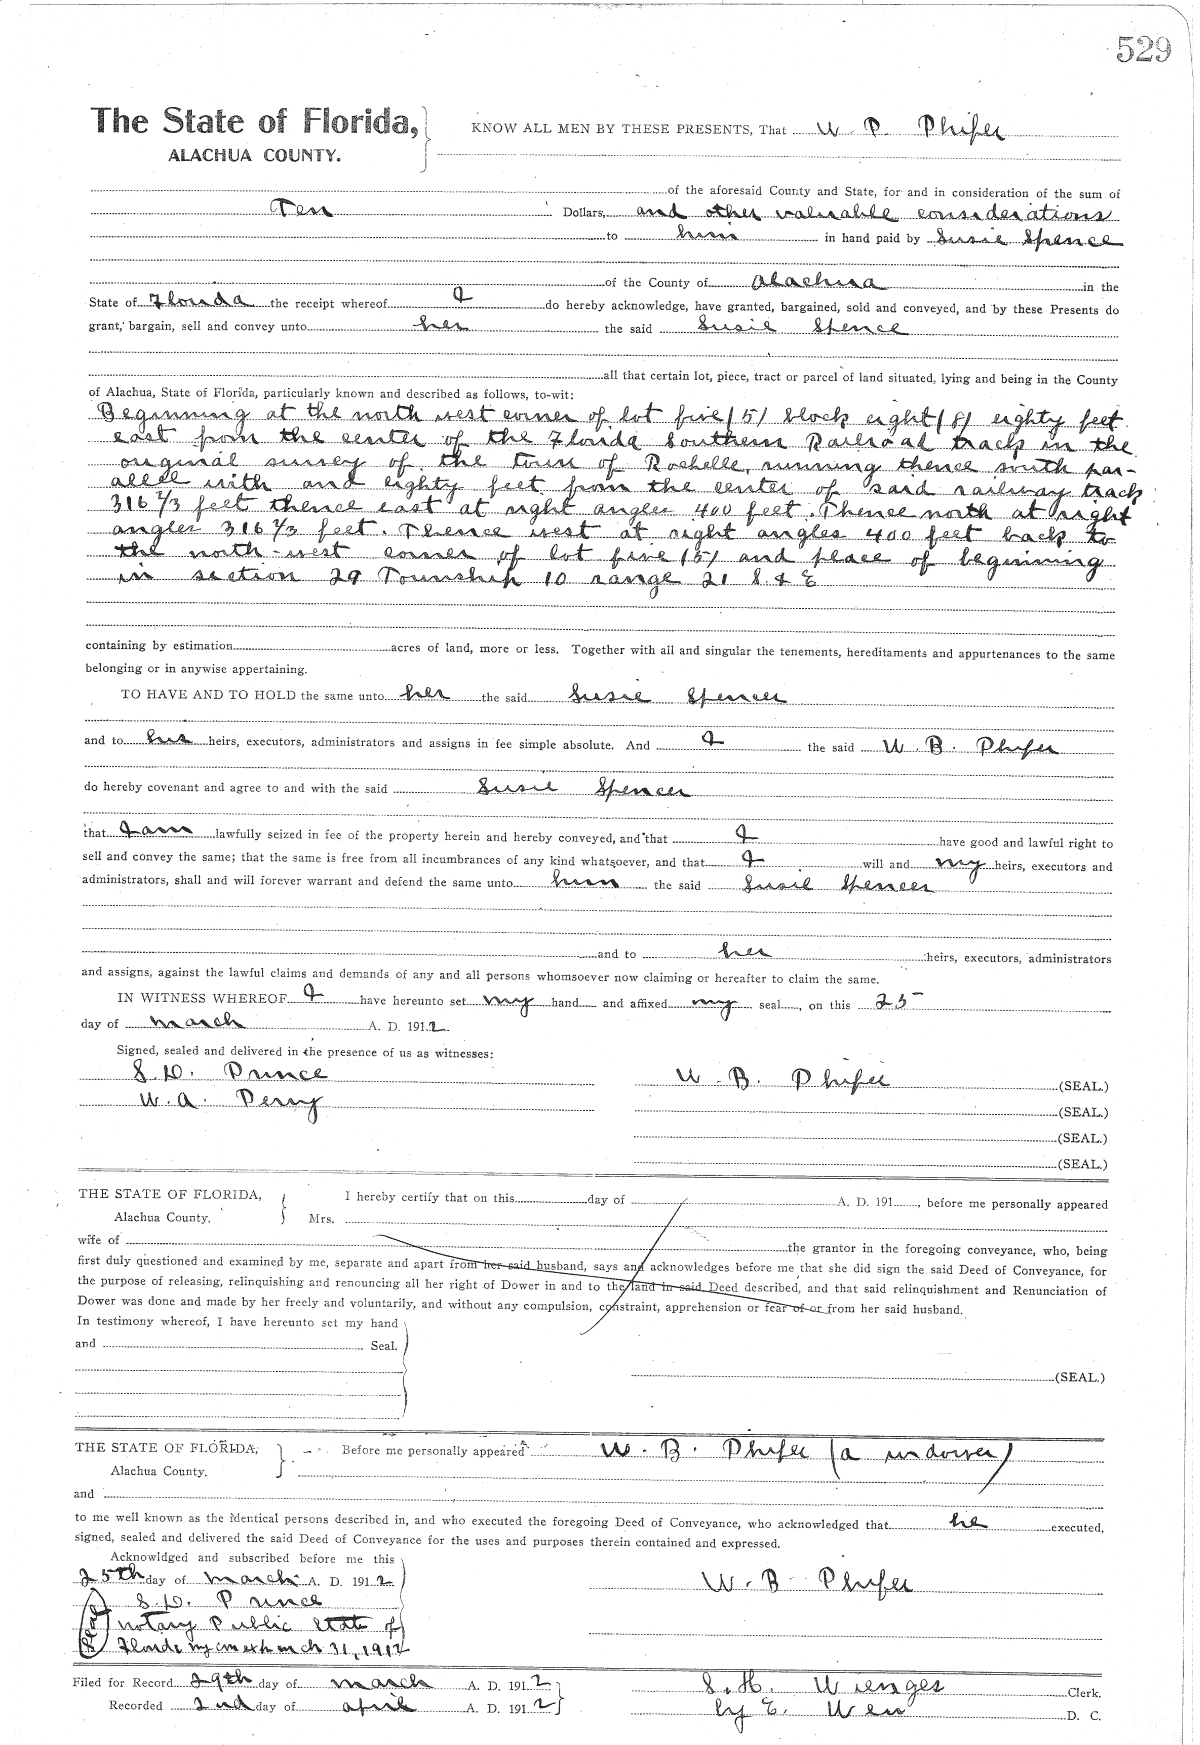 529
The State of Florida,
ALACHUA COUNTY.
KNOW ALL MEN BY THESE PRESENTS, That W. P. Phifer
of the aforesaid County and State, for and in consideration of the sum of
Ten Dollars, and other valuable considerations
to him in hand paid by Susie Spence
of the County of Alachua in the
State of Florida the receipt whereof I do hereby acknowledge, have granted, bargained, sold and conveyed, and by these Presents do
grant, bargain, sell and convey unto her the said Susie Spence
all that certain lot, piece, tract or parcel of land situated, lying and being in the County
of Alachua, State of Florida, particularly known and described as follows, to-wit:
Beginning at the north west corner of lot five (5) block eight (8) eighty feet
east from the center of the Florida Southern Railroad track in the
original survey of the town of Rochelle, running thence south par-
allel with and eighty feet from the center of said railway track
316 2/3 feet thence east at right angles 400 feet. Thence north at right
angles 316 2/3 feet. Thence west at right angles 400 feet back to
the north-west corner of lot five (5) and place of beginning
in section 29 Township 10 range 21 S & E
containing by estimation acres of land, more or less. Together with all and singular the tenements, hereditaments and appurtenances to the same
belonging or in anywise appertaining.
TO HAVE AND TO HOLD the same unto her the said Susie Spencer
and to his heirs, executors, administrators and assigns in fee simple absolute. And I the said W. B. Phifer
do hereby covenant and agree to and with the said Susie Spencer
that I am lawfully seized in fee of the property herein and hereby conveyed, and that I have good and lawful right to
sell and convey the same; that the same is free from all incumbrances of any kind whatsoever, and that I will and my heirs, executors and
administrators, shall and will forever warrant and defend the same unto him the said Susie Spencer
and to her heirs, executors, administrators
and assigns, against the lawful claims and demands of any and all persons whomsoever now claiming or hereafter to claim the same.
IN WITNESS WHEREOF I have hereunto set my hand and affixed my seal, on this 25
day of March A. D. 1912.
Signed, sealed and delivered in the presence of us as witnesses:
S. D. Prince
W. A. Perry
W. B. Phifer (SEAL.)
(SEAL.)
(SEAL.)
(SEAL.)
THE STATE OF FLORIDA,
Alachua County.
I hereby certify that on this day of A. D. 191, before me personally appeared
Mrs.
wife of the grantor in the foregoing conveyance, who, being
first duly questioned and examined by me, separate and apart from her said husband, says and acknowledges before me that she did sign the said Deed of Conveyance, for
the purpose of releasing, relinquishing and renouncing all her right of Dower in and to the land in said Deed described, and that said relinquishment and Renunciation of
Dower was done and made by her freely and voluntarily, and without any compulsion, constraint, apprehension or fear of or from her said husband.
In testimony whereof, I have hereunto set my hand
and Seal.
(SEAL.)
THE STATE OF FLORIDA,
Alachua County.
Before me personally appeared W. B. Phifer (a widower)
and
to me well known as the identical persons described in, and who executed the foregoing Deed of Conveyance, who acknowledged that he executed,
signed, sealed and delivered the said Deed of Conveyance for the uses and purposes therein contained and expressed.
Acknowldged and subscribed before me this
25th day of March A. D. 1912
W. B. Phifer
S. D. Prince
Notary Public State of
Florida my com exp March 31, 1912
Filed for Record 29th day of March A. D. 1912
Recorded 2nd day of April A. D. 1912
S. H. Wienges Clerk.
by E. Wien D. C.